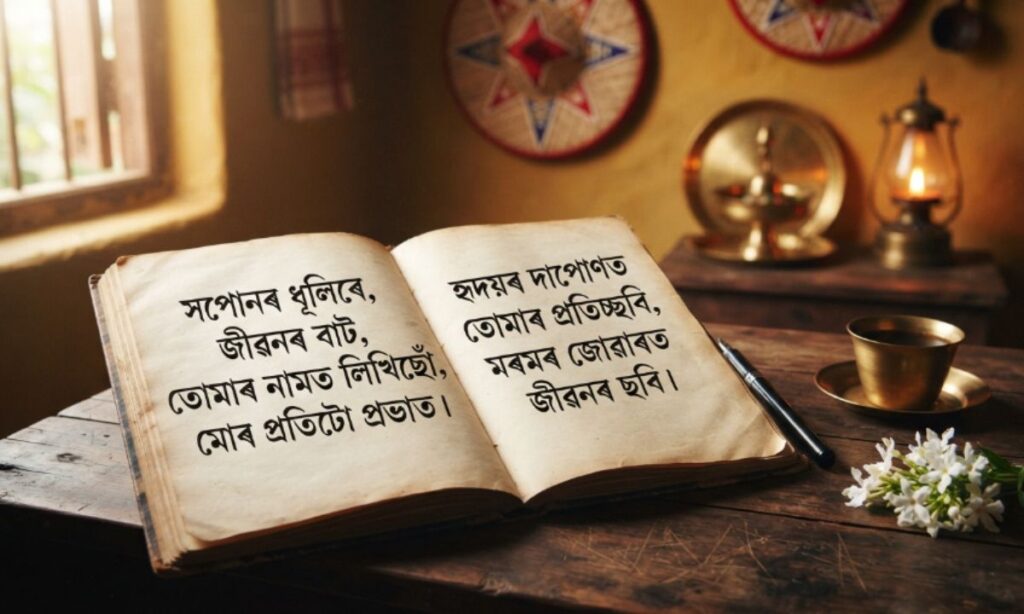 সপোনৰ ধূলিৰে,
জীৱনৰ বাট,
তোমাৰ নামত লিখিছোঁ,
মোৰ প্ৰতিটো প্ৰভাত।
হৃদয়ৰ দাপোণত
তোমাৰ প্ৰতিচ্ছবি,
মৰমৰ জোৱাৰত
জীৱনৰ ছবি।